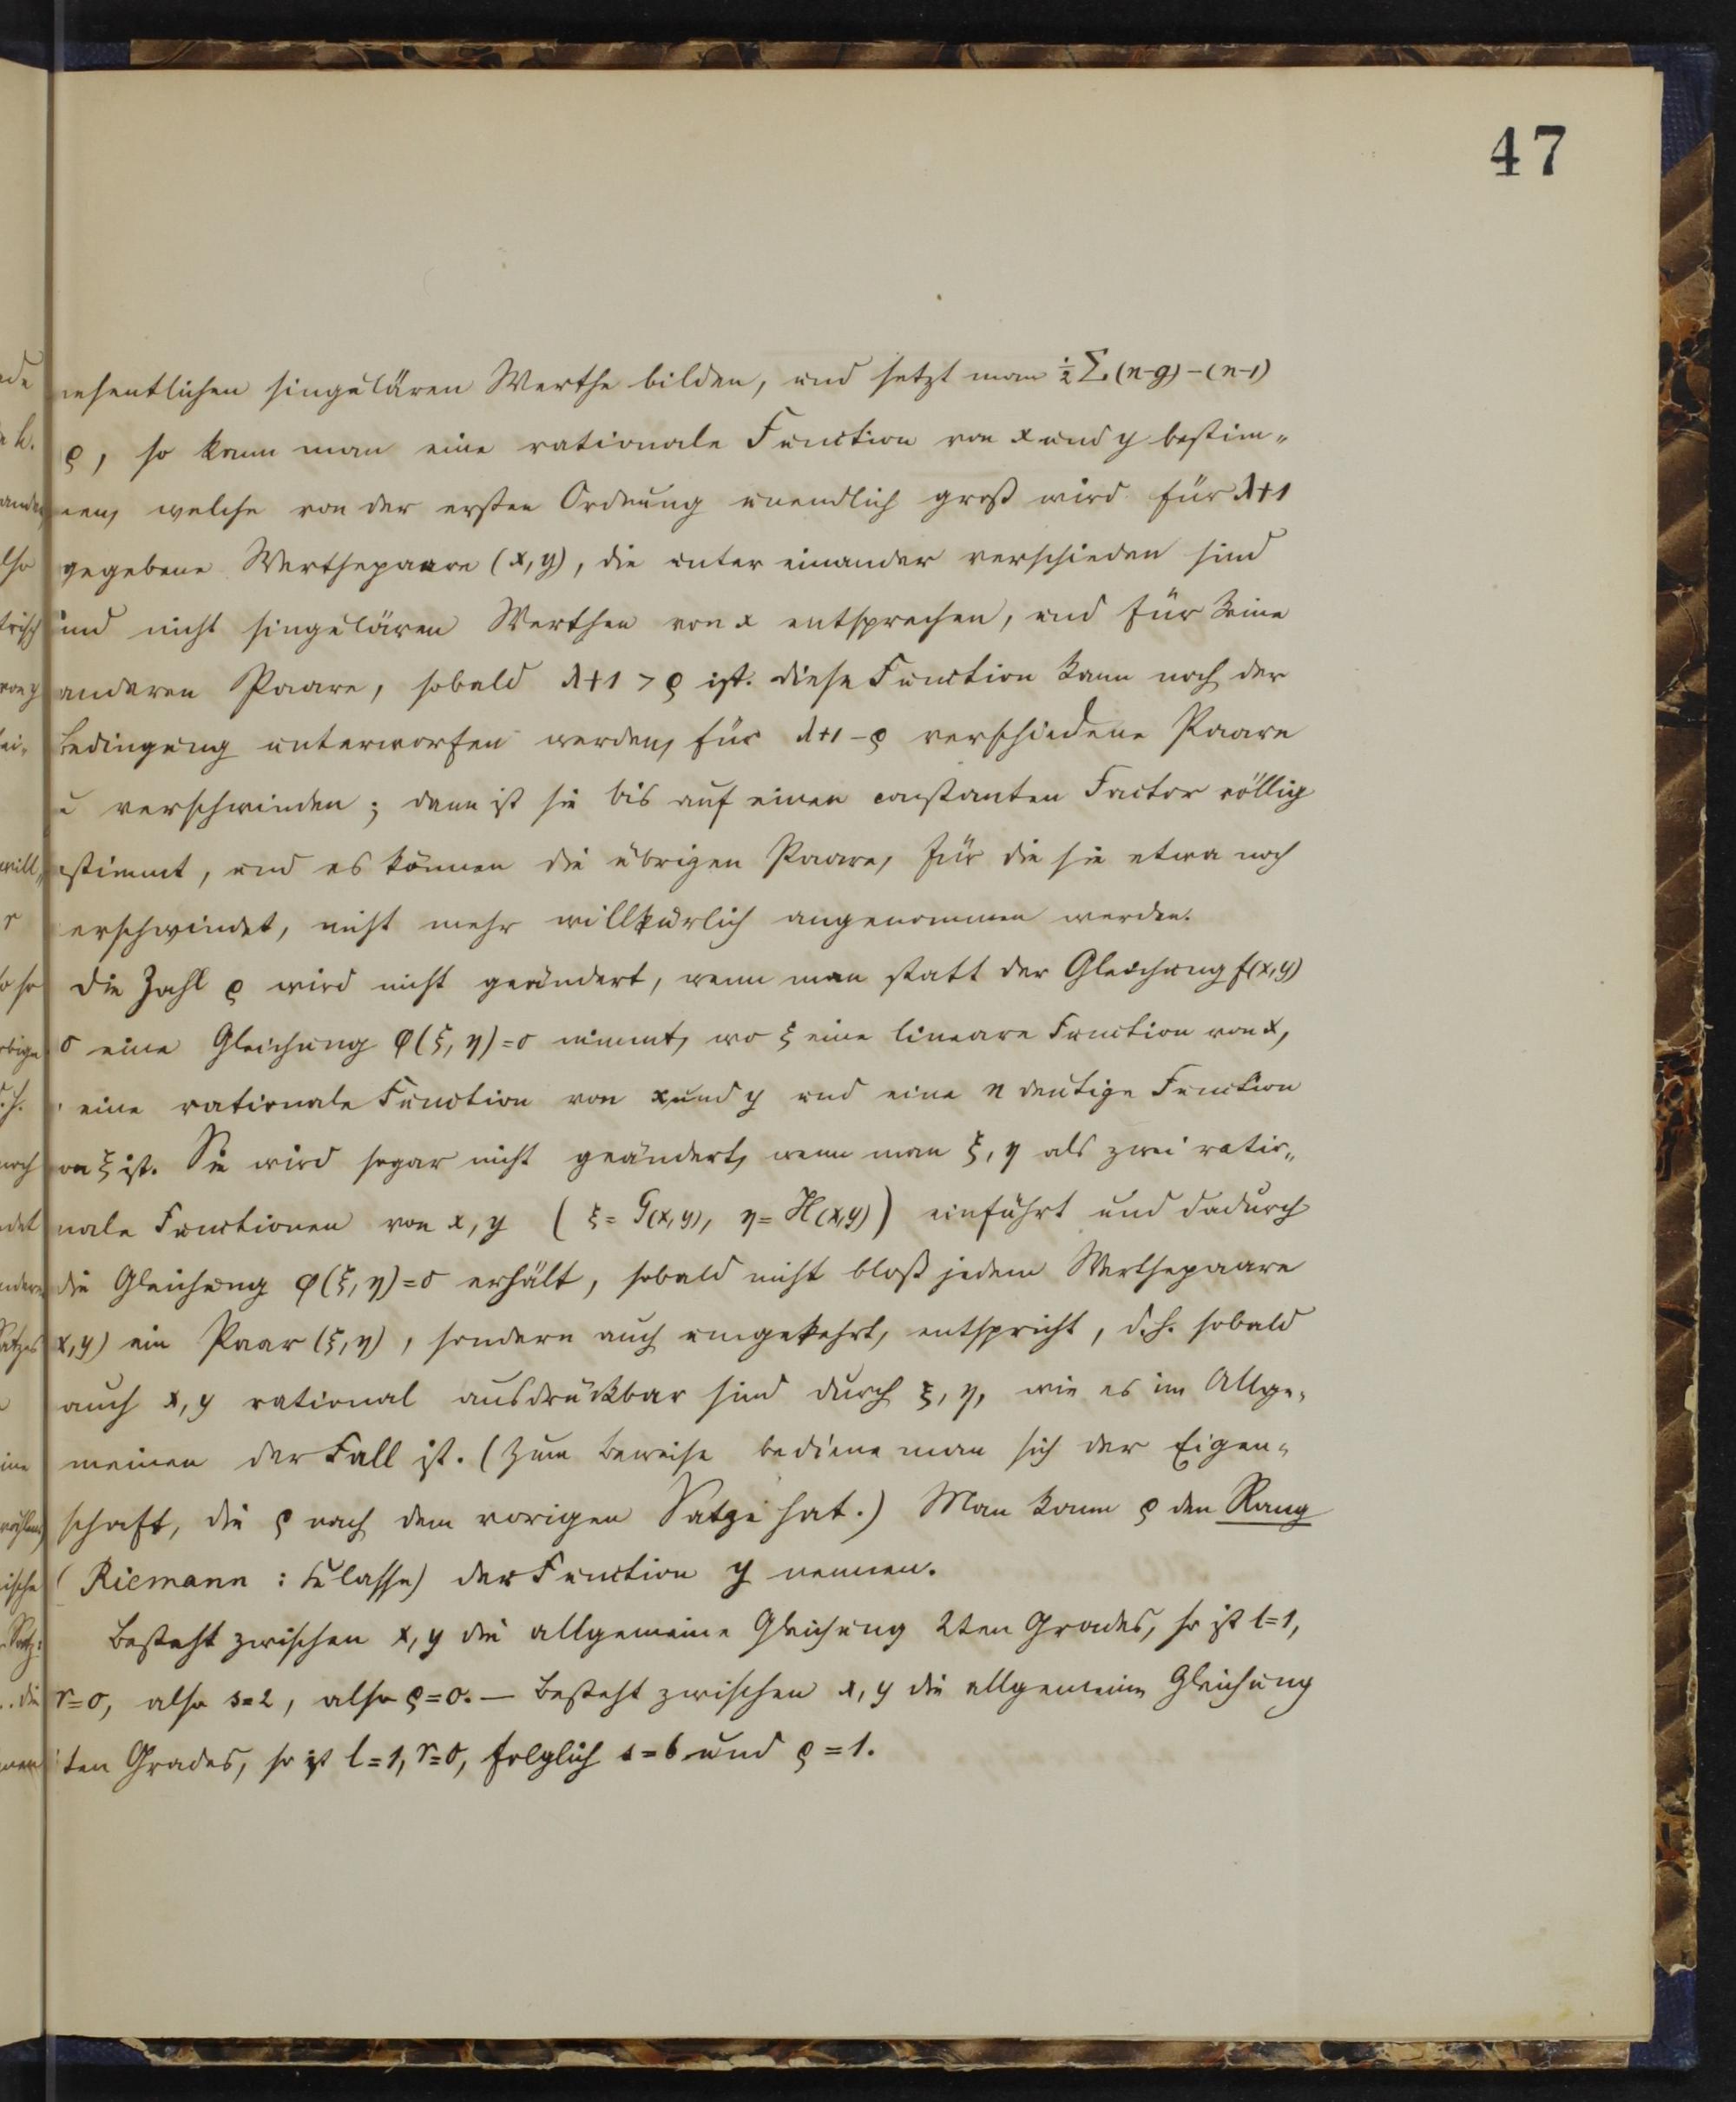 47
wesentlichen singulären Werthe bilden, und setzt man ½ Σ (n-g) - (n-1)
ρ, so kann man eine rationale Function von x und y bestim-
men, welche von der ersten Ordnung unendlich groß wird für λ+1
gegebene Werthepaare (x, y), die unter einander verschieden sind
und nicht singulären Werthen von x entsprechen, und für keine
anderen Paare, sobald λ+1 > ρ ist. Diese Function kann noch der
Bedingung unterworfen werden, für λ+1-ρ verschiedene Paare
zu verschwinden; dann ist sie bis auf einen constanten Factor völlig
stimmt, und es können die übrigen Paare, für die sie etwa noch
erschwindet, nicht mehr willkürlich angenommen werden.
Die Zahl ρ wird nicht geändert, wenn man statt der Gleichung f(x, y)
0 eine Gleichung φ(ξ, η)=0 nimmt, wo ξ eine lineare Function von x,
eine rationale Function von x und y und eine n deutige Function
von ξ ist. Sie wird sogar nicht geändert, wenn man ξ, η als zwei ratio-
nale Functionen von x, y (ξ = G(x, y), η = H(x, y)) einführt und dadurch
die Gleichung φ(ξ, η)=0 erhält, sobald nicht bloß jedem Werthepaare
x, y) ein Paar (ξ, η), sondern auch umgekehrt, entspricht, d. h. sobald
auch x, y rational ausdrückbar sind durch ξ, η, wie es im Allge-
meinen der Fall ist. (Zum Beweise bediene man sich der Eigen-
schaft, die ρ nach dem vorigen Satze hat.) Man kann ρ den Rang
(Riemann : Klasse) der Function y nennen.
Besteht zwischen x, y die allgemeine Gleichung 2ten Grades, so ist l=1,
r=0, also s=2, also ρ=0. — Besteht zwischen x, y die allgemeine Gleichung
ten Grades, so ist l=1, r=0, folglich s=6 und ρ=1.